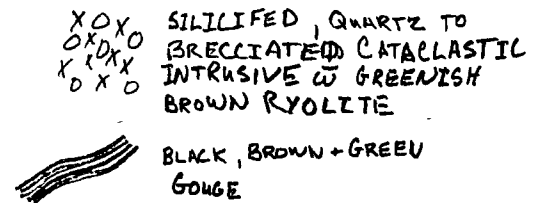 SILICIFED, QUARTZ TO
BRECCIATED CATACLASTIC
INTRUSIVE W̄ GREENISH
BROWN RYOLITE
BLACK, BROWN + GREEN
GOUGE